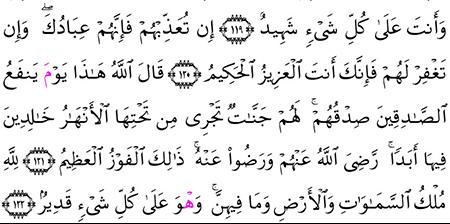 وَأَنتَ عَلَىٰ كُلِّ شَىْءٍۢ شَهِيدٌ ﴿١١٩﴾ إِن تُعَذِّبْهُمْ فَإِنَّهُمْ عِبَادُكَ ۖ وَإِن
تَغْفِرْ لَهُمْ فَإِنَّكَ أَنتَ ٱلْعَزِيزُ ٱلْحَكِيمُ ﴿١٢٠﴾ قَالَ ٱللَّهُ هَـٰذَا يَوْمَ يَنفَعُ
ٱلصَّـٰدِقِينَ صِدْقُهُمْ ۚ لَهُمْ جَنَّـٰتٌۭ تَجْرِى مِن تَحْتِهَا ٱلْأَنْهَـٰرُ خَـٰلِدِينَ
فِيهَآ أَبَدًۭا ۚ رَّضِىَ ٱللَّهُ عَنْهُمْ وَرَضُوا۟ عَنْهُ ۚ ذَٰلِكَ ٱلْفَوْزُ ٱلْعَظِيمُ ﴿١٢١﴾ لِلَّهِ
مُلْكُ ٱلسَّمَـٰوَٰتِ وَٱلْأَرْضِ وَمَا فِيهِنَّ ۚ وَهْوَ عَلَىٰ كُلِّ شَىْءٍۢ قَدِيرٌۢ ﴿١٢٢﴾